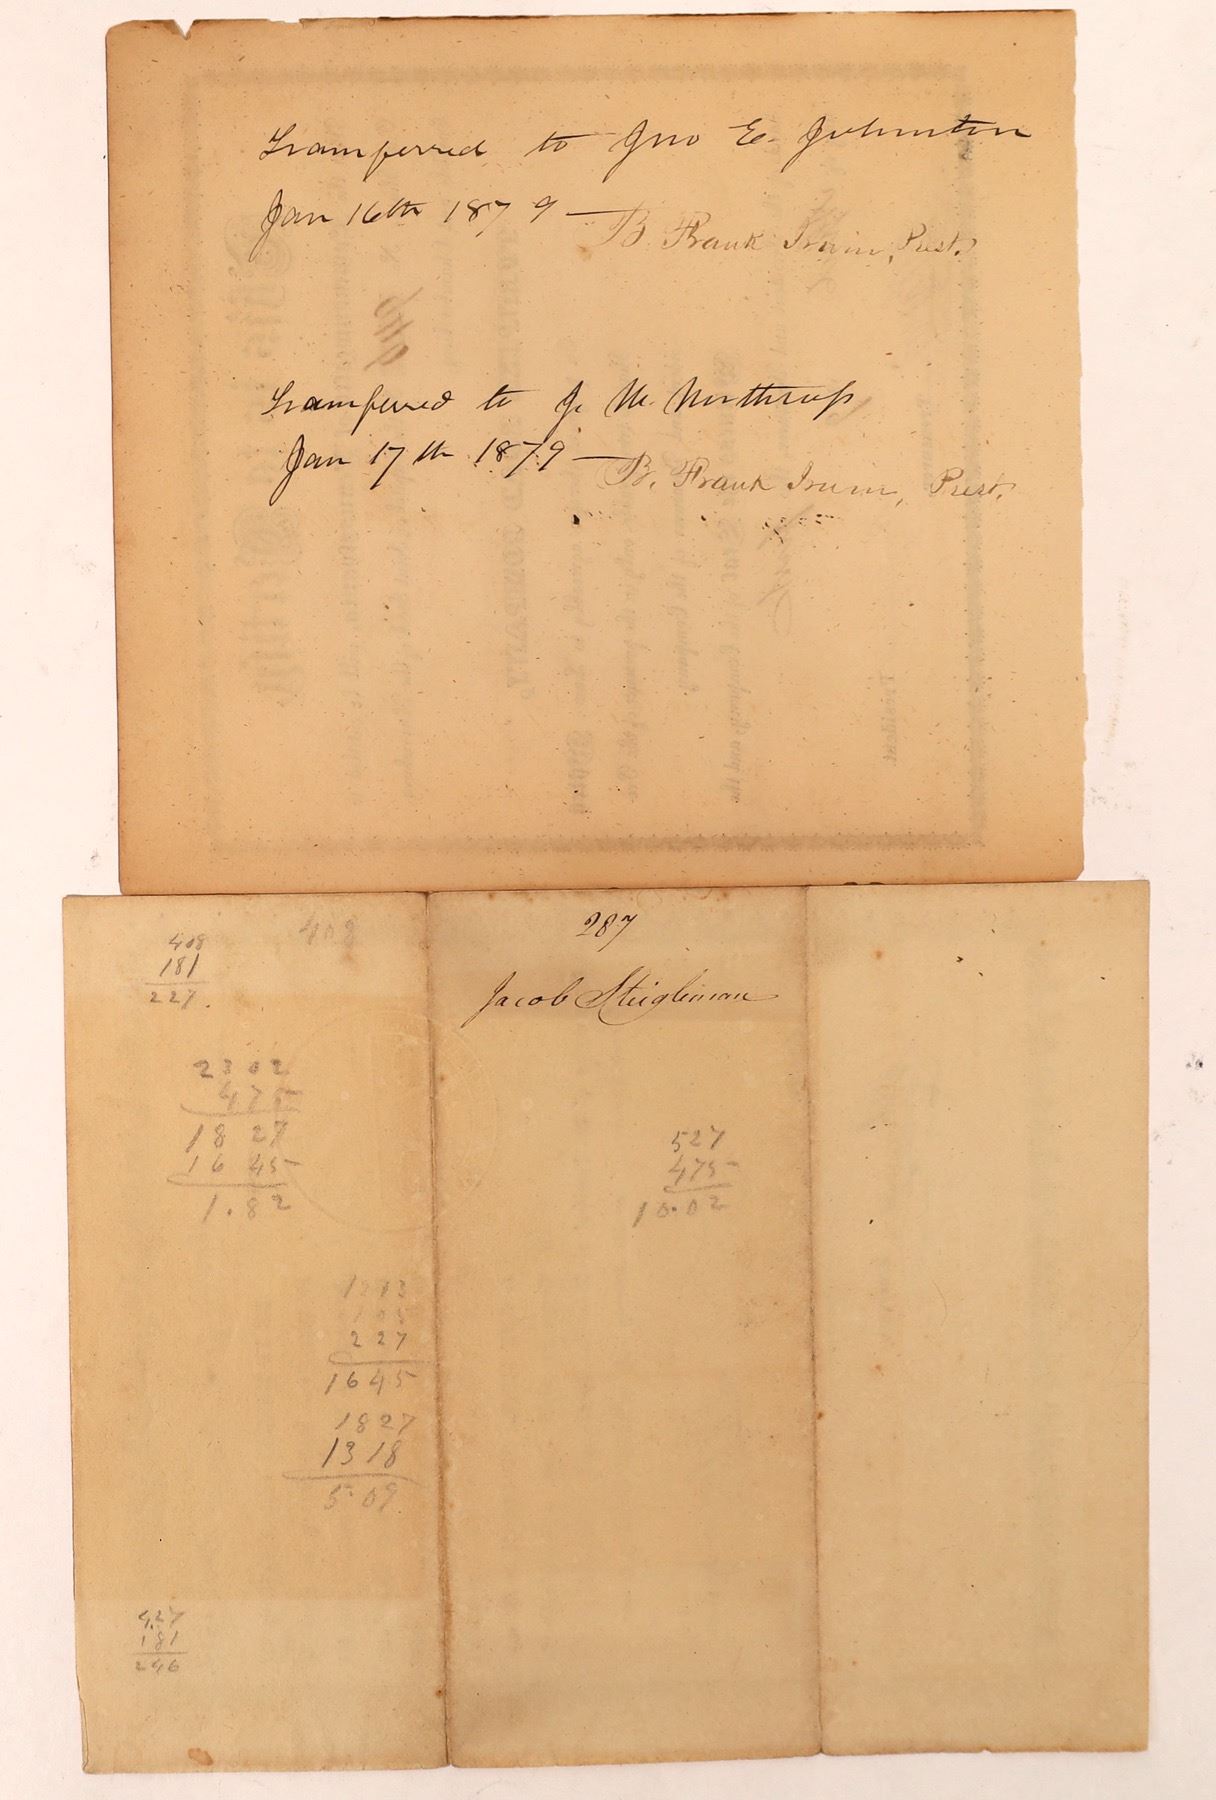 Transferred to Jno E. Johnston
Jan 16th 1879 — B. Frank Irwin, Prest.
Transferred to J. M. Northrup
Jan 17th 1879 — B. Frank Irwin, Prest.
287
Jacob Stiegleman
408
408
181
227.
2302
475
1827
1645
1.82
527
475
10.02
227
1645
1827
1318
5.09
427
181
246